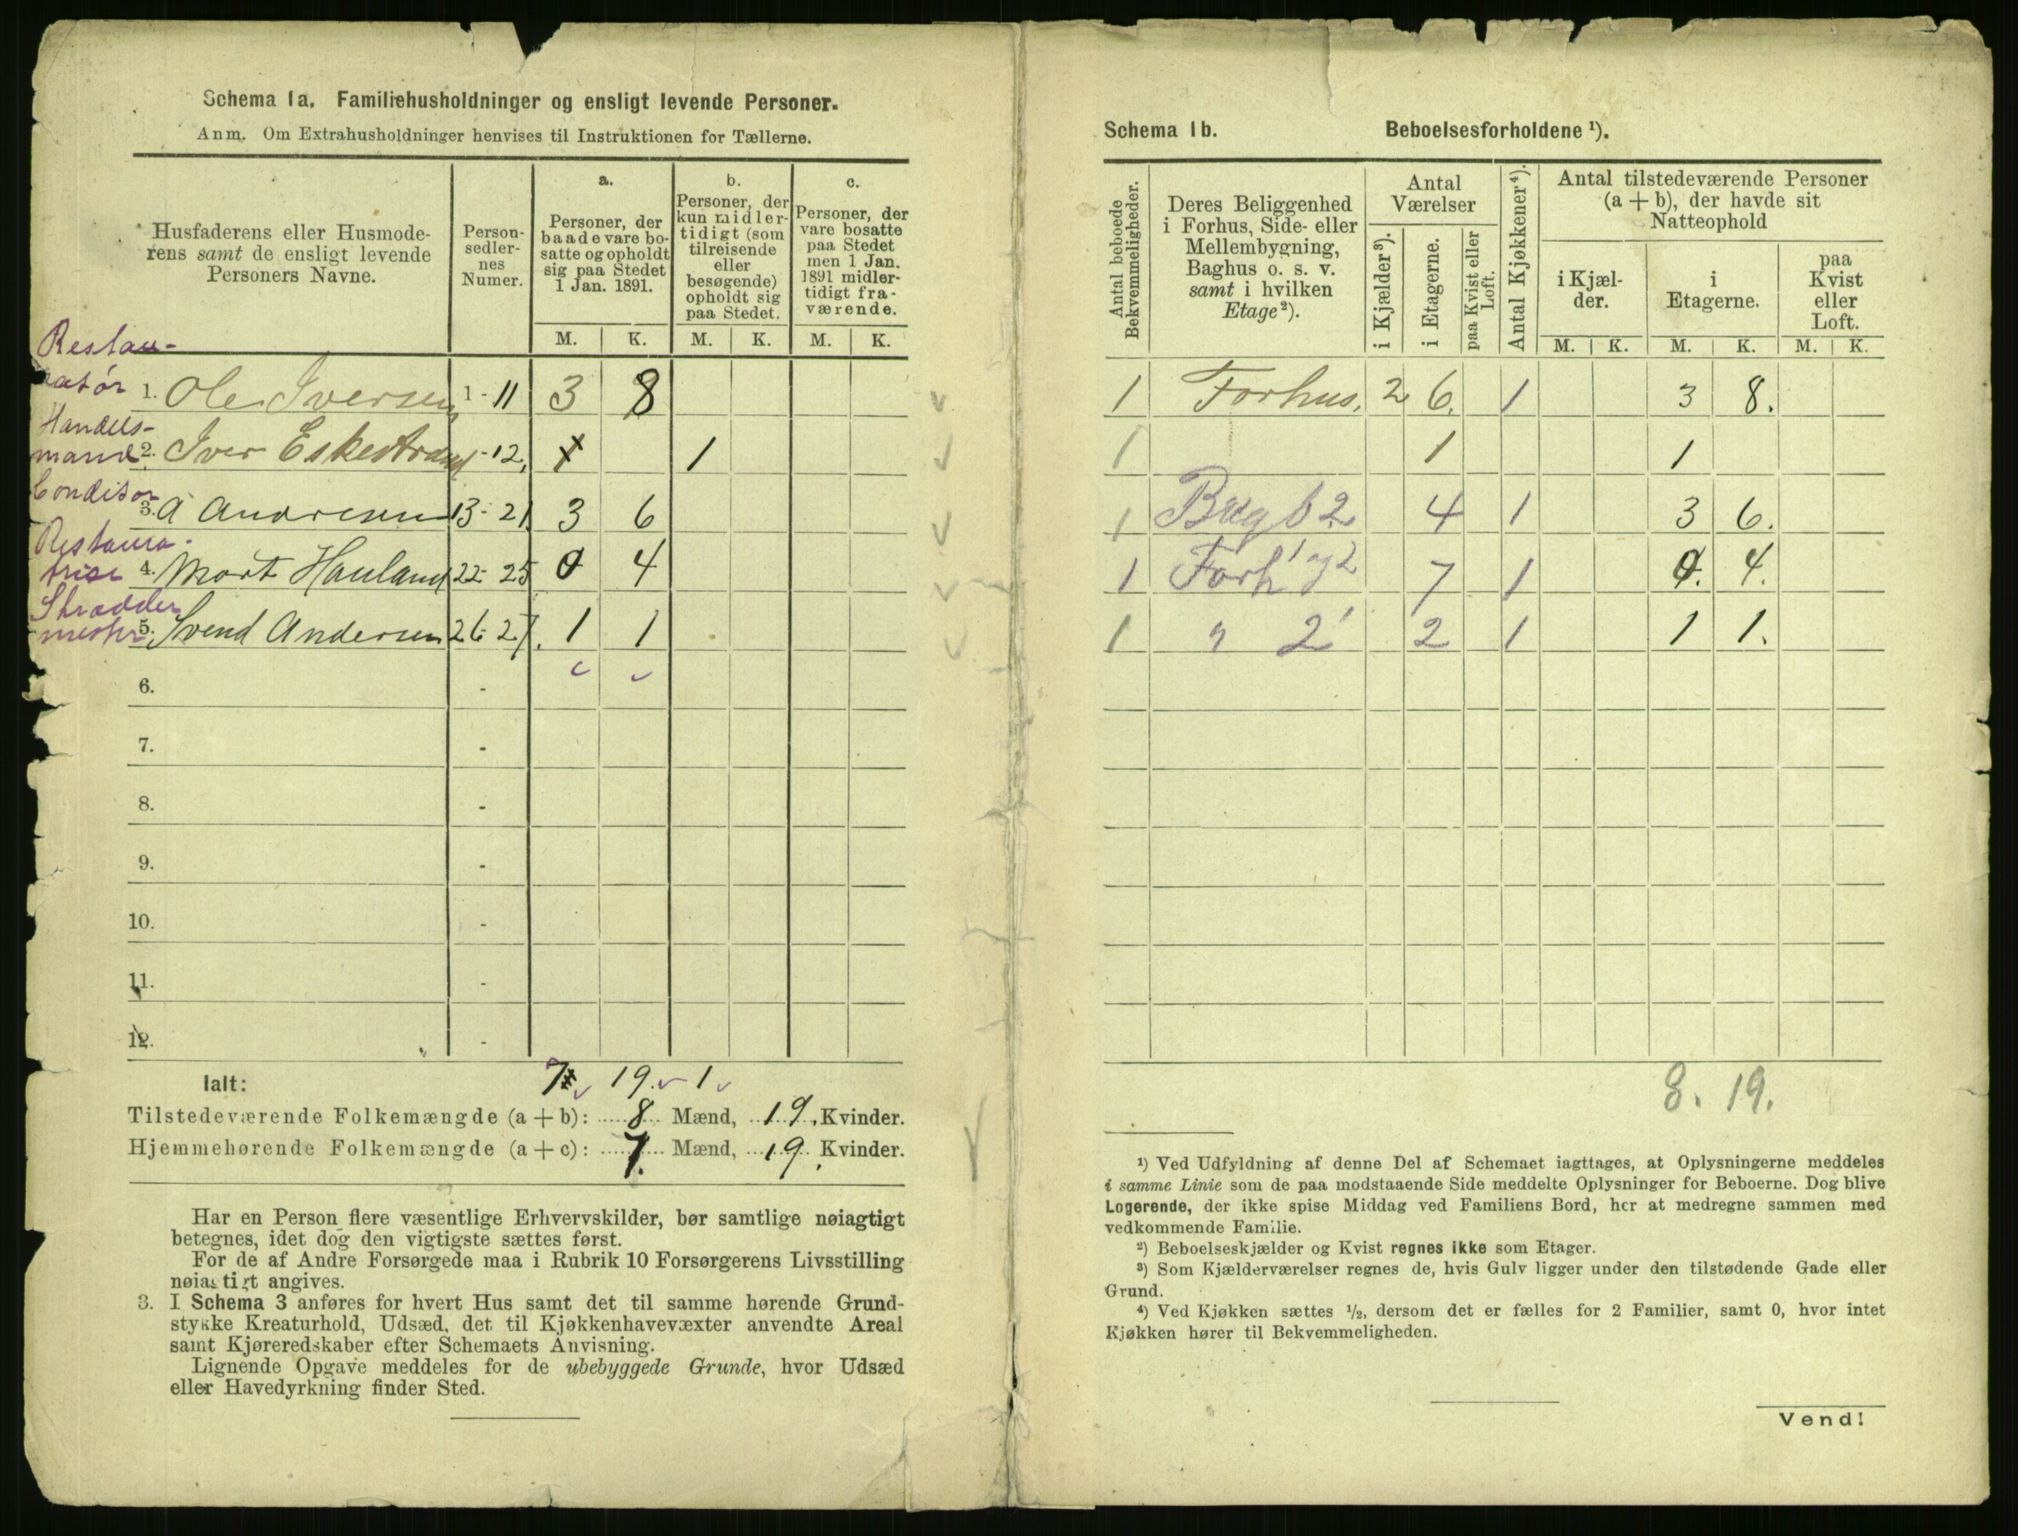 Schema 1a. Familiehusholdninger og ensligt levende Personer.
Anm. Om Extrahusholdninger henvises til Instruktionen for Tællerne.
Husfaderens eller Husmode-
rens samt de ensligt levende
Personers Navne.
Person-
sedler-
nes
Numer.
a.
Personer, der
baade vare bo-
satte og opholdt
sig paa Stedet
1 Jan. 1891.
b.
Personer, der
kun midler-
tidigt (som
tilreisende
eller
besøgende)
opholdt sig
paa Stedet.
c.
Personer, der
vare bosatte
paa Stedet
men 1 Jan.
1891 midler-
tidigt fra-
værende.
M. K. M. K. M. K.
Restau-
ratør 1. Ole Iversen 1-11 3 8
Handels-
mand 2. Iver Eskestrand -12. 1 1
Conditor
3. A Andresen 13-21 3 6
Restaura-
trise 4. Mart Hauland 22-25 0 4
Skrædder
mester 5. Svend Andersen 26-27. 1 1
6. -
7. -
8. -
9. -
10. -
11. -
12. -
Ialt: 7 19. 1
Tilstedeværende Folkemængde (a + b): 8 Mænd, 19. Kvinder.
Hjemmehørende Folkemængde (a + c): 7. Mænd, 19. Kvinder.
Har en Person flere væsentlige Erhvervskilder, bør samtlige nøiagtigt
betegnes, idet dog den vigtigste sættes først.
For de af Andre Forsørgede maa i Rubrik 10 Forsørgerens Livsstilling
nøiagtigt angives.
3. I Schema 3 anføres for hvert Hus samt det til samme hørende Grund-
stykke Kreaturhold, Udsæd, det til Kjøkkenhavevæxter anvendte Areal
samt Kjøreredskaber efter Schemaets Anvisning.
Lignende Opgave meddeles for de ubebyggede Grunde, hvor Udsæd
eller Havedyrkning finder Sted.
Schema 1b. Beboelsesforholdene ¹).
Antal beboede
Bekvemmeligheder.
Deres Beliggenhed
i Forhus, Side- eller
Mellembygning,
Baghus o. s. v.
samt i hvilken
Etage ²).
Antal
Værelser
i Kjælder ³).
i Etagerne.
paa Kvist eller
Loft.
Antal Kjøkkener ⁴).
Antal tilstedeværende Personer
(a + b), der havde sit
Natteophold
i Kjæl-
der.
i
Etagerne.
paa
Kvist
eller
Loft.
M. K. M. K. M. K.
1 Forhus. 2 6. 1 3 8.
1 1 1
1 Bagb 2 4 1 3 6.
1 Forh 1 og 2 7 1 0. 4.
1 " 2 2 1 1 1.
8. 19.
¹) Ved Udfyldning af denne Del af Schemaet iagttages, at Oplysningerne meddeles
i samme Linie som de paa modstaaende Side meddelte Oplysninger for Beboerne. Dog blive
Logerende, der ikke spise Middag ved Familiens Bord, her at medregne sammen med
vedkommende Familie.
²) Beboelseskjælder og Kvist regnes ikke som Etager.
³) Som Kjælderværelser regnes de, hvis Gulv ligger under den tilstødende Gade eller
Grund.
⁴) Ved Kjøkken sættes ½, dersom det er fælles for 2 Familier, samt 0, hvor intet
Kjøkken hører til Bekvemmeligheden.
Vend!